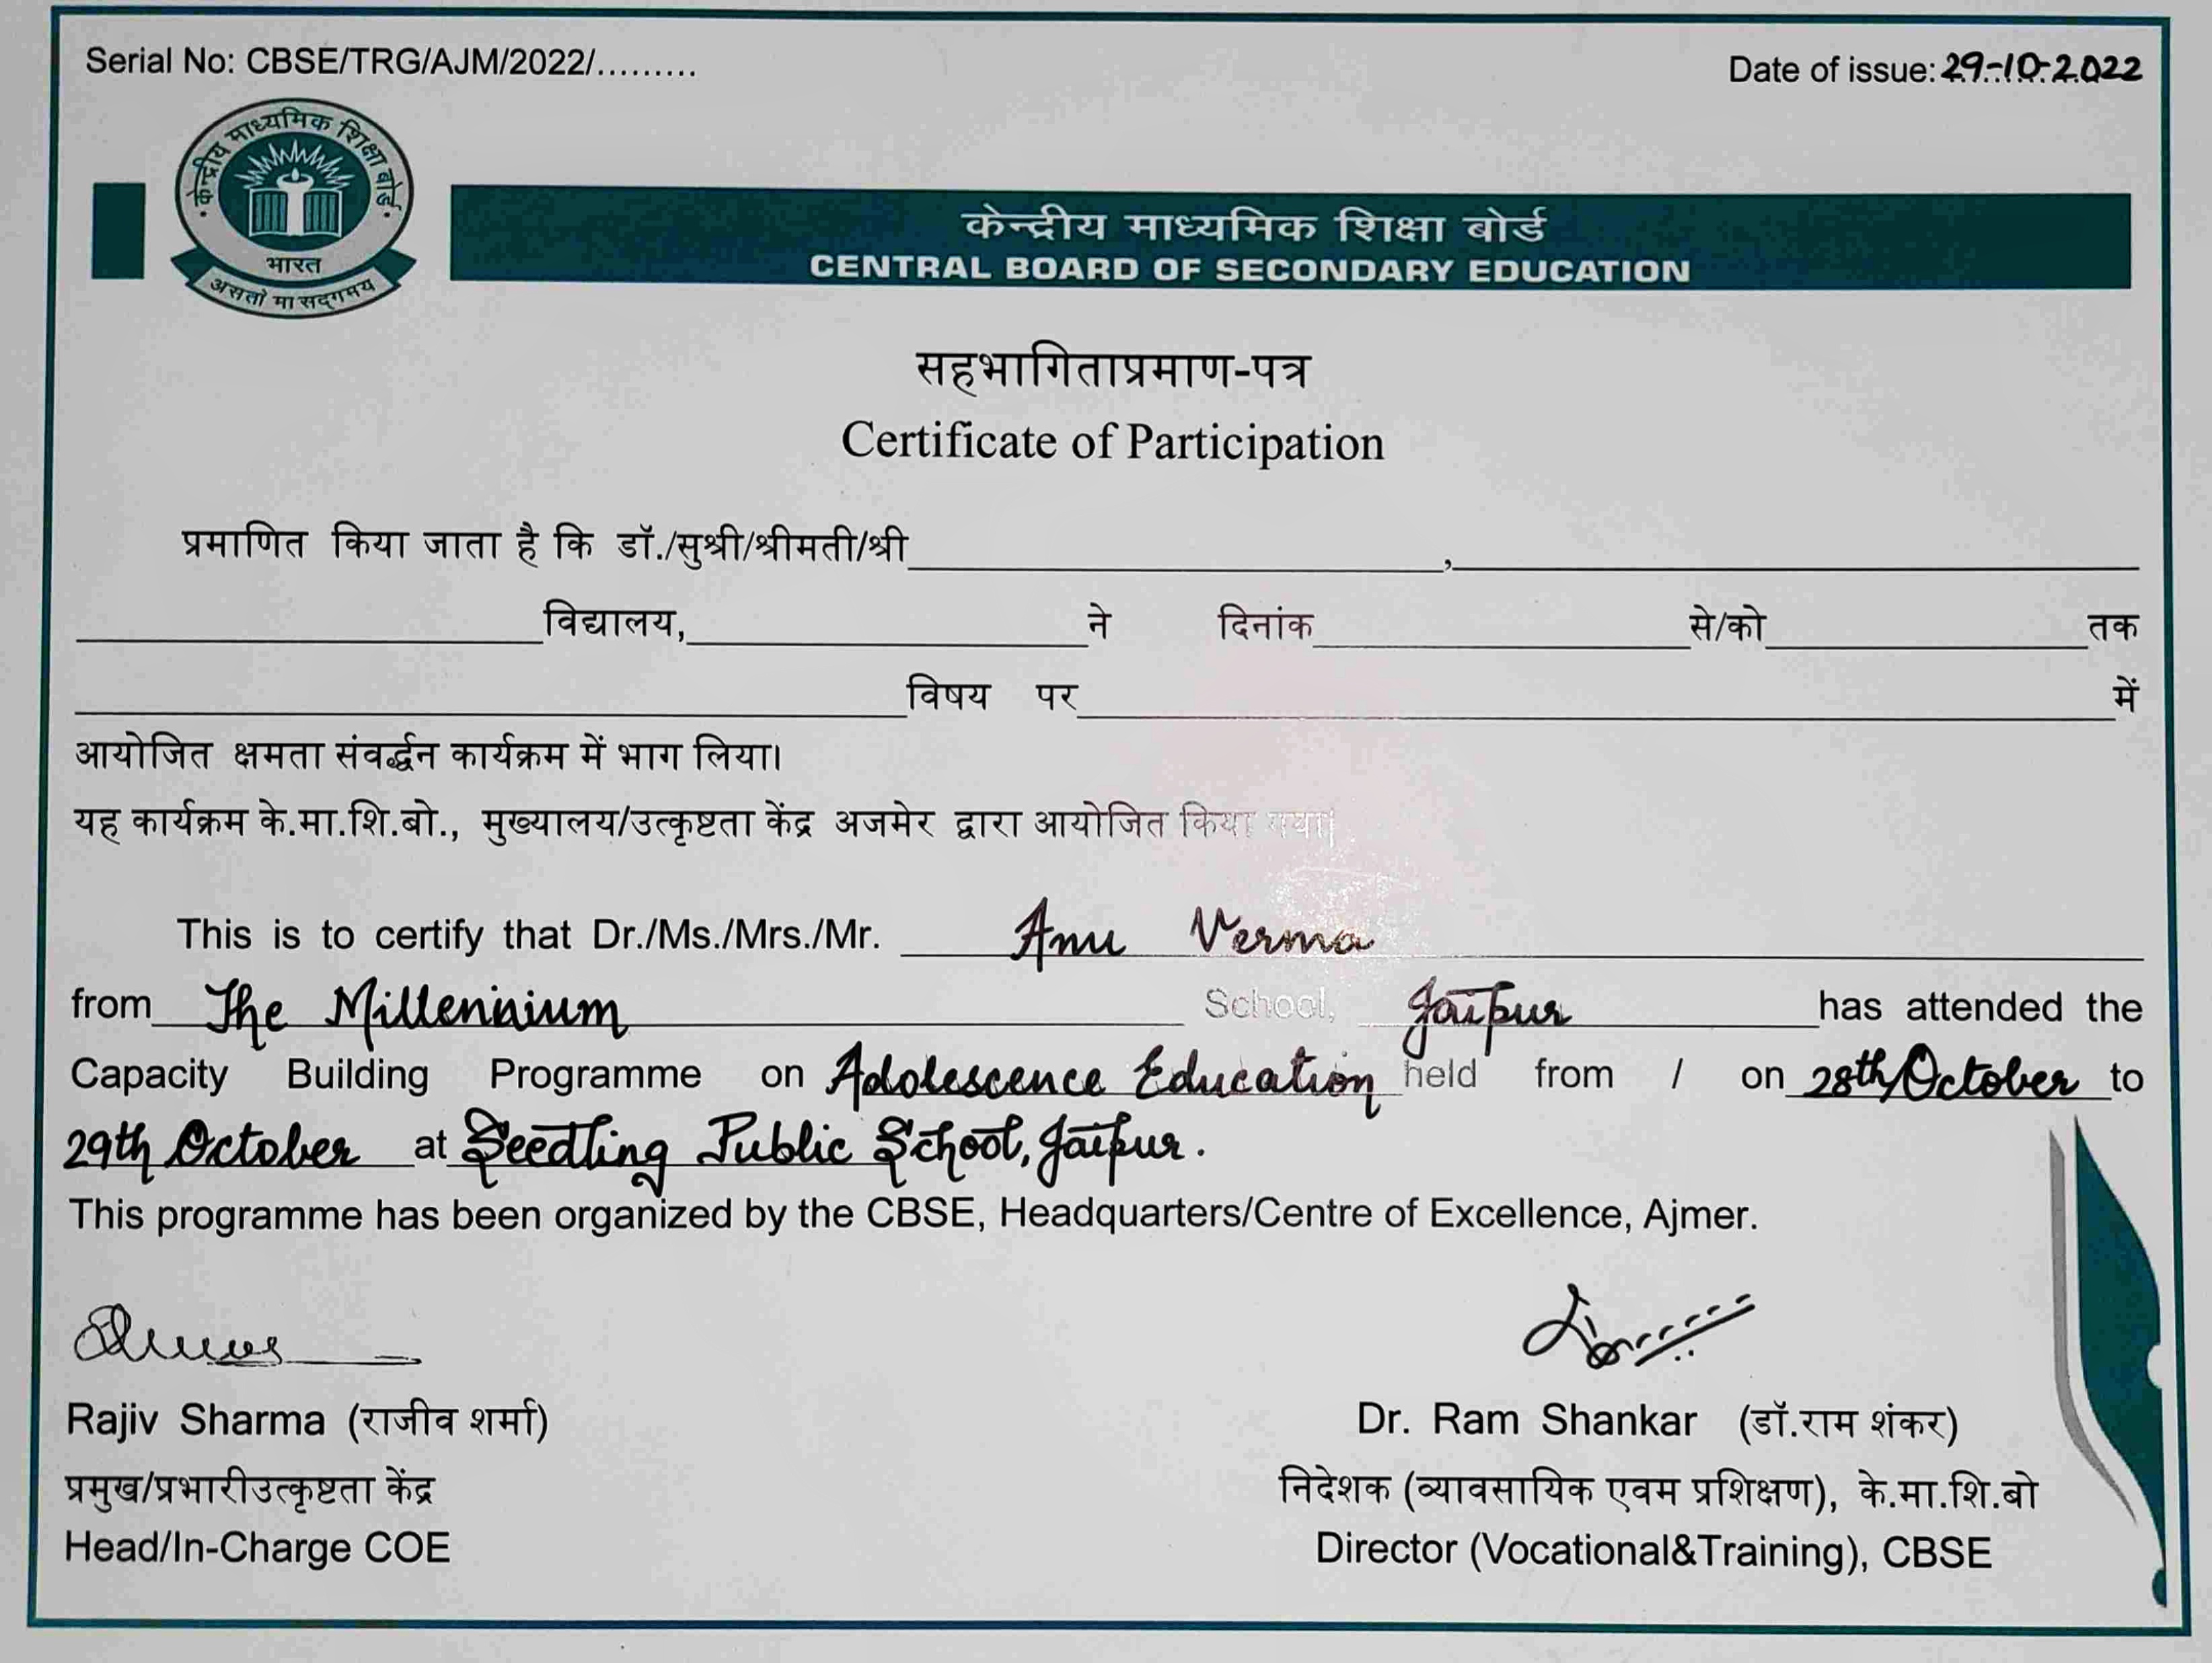 Serial No: CBSE/TRG/AJM/2022/.........
Date of issue: 29-10-2022
केन्द्रीय माध्यमिक शिक्षा बोर्ड
भारत
असतो मा सद्गमय
केन्द्रीय माध्यमिक शिक्षा बोर्ड
CENTRAL BOARD OF SECONDARY EDUCATION
सहभागिताप्रमाण-पत्र
Certificate of Participation
प्रमाणित किया जाता है कि डॉ./सुश्री/श्रीमती/श्री____________,____________
____________विद्यालय,____________ने दिनांक____________से/को____________तक
____________विषय पर____________में
आयोजित क्षमता संवर्द्धन कार्यक्रम में भाग लिया।
यह कार्यक्रम के.मा.शि.बो., मुख्यालय/उत्कृष्टता केंद्र अजमेर द्वारा आयोजित किया गया|
This is to certify that Dr./Ms./Mrs./Mr. Anu Verma
from The Millennium School, Jaipur has attended the
Capacity Building Programme on Adolescence Education held from / on 28th October to
29th October at Seedling Public School, Jaipur.
This programme has been organized by the CBSE, Headquarters/Centre of Excellence, Ajmer.
Rajiv Sharma (राजीव शर्मा)
प्रमुख/प्रभारीउत्कृष्टता केंद्र
Head/In-Charge COE
Dr. Ram Shankar (डॉ.राम शंकर)
निदेशक (व्यावसायिक एवम प्रशिक्षण), के.मा.शि.बो
Director (Vocational&Training), CBSE